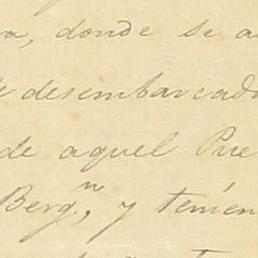 a, donde se a
desembarcad
de aquel Pue
Berg.n, y temien